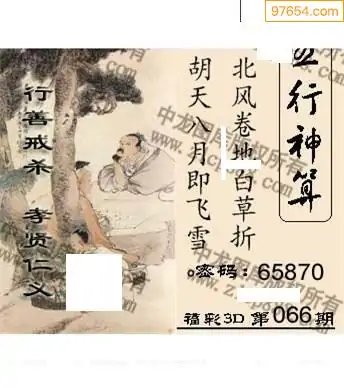 97654.com
五行神算
北风卷地白草折
胡天八月即飞雪
行善戒杀 孝贤仁义
密码：65870
福彩3D 第066期